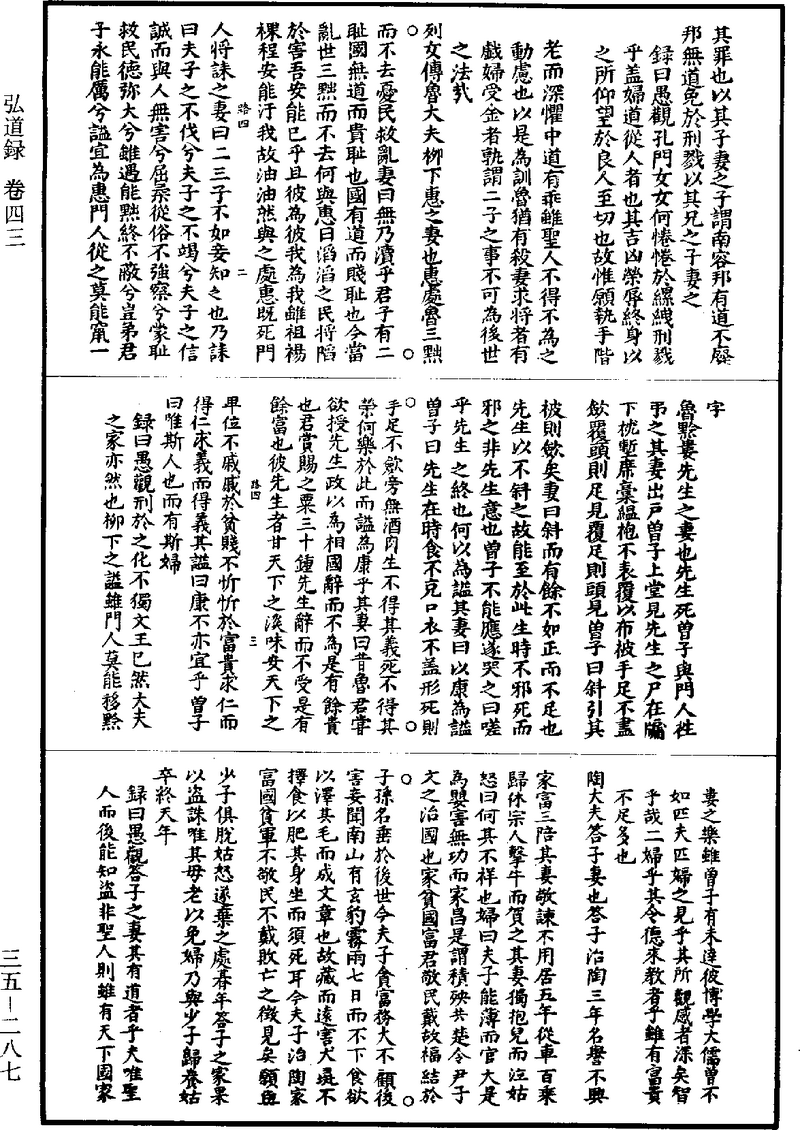 弘道録　卷四三
三五—二八七
其罪也以其子妻之子謂南容邦有道不廢
邦無道免於刑戮以其兄之子妻之
錄曰愚觀孔門女女何惓惓於縲絏刑戮
乎盖婦道從人者也其吉凶榮辱終身以
之所仰望於良人至切也故惟願執手階
老而深懼中道有乖雖聖人不得不為之
動慮也以是為訓魯猶有殺妻求將者有
戲婦受金者孰謂二子之事不可為後世
之法哉
列女傳魯大夫柳下惠之妻也惠處魯三黜
而不去憂民救亂妻曰無乃瀆乎君子有二
耻國無道而貴耻也國有道而賤耻也今當
亂世三黜而不去何與惠曰滔滔之民將陷
於害吾安能已乎且彼為彼我為我雖袒裼
裸程安能汙我故油油然與之處惠既死門
路四　二
人將誄之妻曰二三子不如妾知之也乃誄
曰夫子之不伐兮夫子之不竭兮夫子之信
誠而與人無害兮屈柔從俗不強察兮蒙耻
救民德弥大兮雖遇能黜終不蔽兮豈弟君
子永能厲兮謚宜為惠門人從之莫能竄一
字
魯黔婁先生之妻也先生死曾子與門人徃
弔之其妻出戶曾子上堂見先生之尸在牖
下枕墼席槀緼袍不表覆以布被手足不盡
歛覆頭則足見覆足則頭見曾子曰斜引其
被則歛矣妻曰斜而有餘不如正而不足也
先生以不斜之故能至於此生時不邪死而
邪之非先生意也曾子不能應遂哭之曰嗟
乎先生之終也何以為謚其妻曰以康為謚
曾子曰先生在時食不充口衣不盖形死則
手足不歛旁無酒肉生不得其義死不得其
榮何樂於此而謚為康乎其妻曰昔魯君甞
欲授先生政以為相國辭而不為是有餘貴
也君賞賜之粟三十鍾先生辭而不受是有
餘富也彼先生者甘天下之淡味安天下之
路四　三
卑位不戚戚於貧賤不忻忻於富貴求仁而
得仁求義而得義其謚曰康不亦宜乎曾子
曰唯斯人也而有斯婦
錄曰愚觀刑於之化不獨文王已然大夫
之家亦然也柳下之謚雖門人莫能移黔
婁之樂雖曾子有未達彼博學大儒曾不
如匹夫匹婦之見乎其所觀感者深矣智
乎哉二婦乎其令德來教者乎雖有富貴
不足多也
陶大夫荅子妻也荅子治陶三年名譽不興
家富三陪其妻敬諫不用居五年從車百乘
歸休宗人擊牛而賀之其妻獨抱兒而泣姑
怒曰何其不祥也婦曰夫子能薄而官大是
為嬰害無功而家昌是謂積殃共楚令尹子
文之治國也家貧國富君敬民戴故福結於
子孫名垂於後世今夫子貪富務大不顧後
害妾聞南山有玄豹霧雨七日而不下食欲
以澤其毛而成文章也故藏而遠害犬彘不
擇食以肥其身坐而須死耳今夫子治陶家
富國貧軍不敬民不戴敗亡之徵見矣願與
少子俱脫姑怒遂棄之處朞年荅子之家果
以盜誅唯其母老以免婦乃與少子歸養姑
卒終天年
錄曰愚觀荅子之妻其有道者乎夫唯聖
人而後能知盜非聖人則雖有天下國家